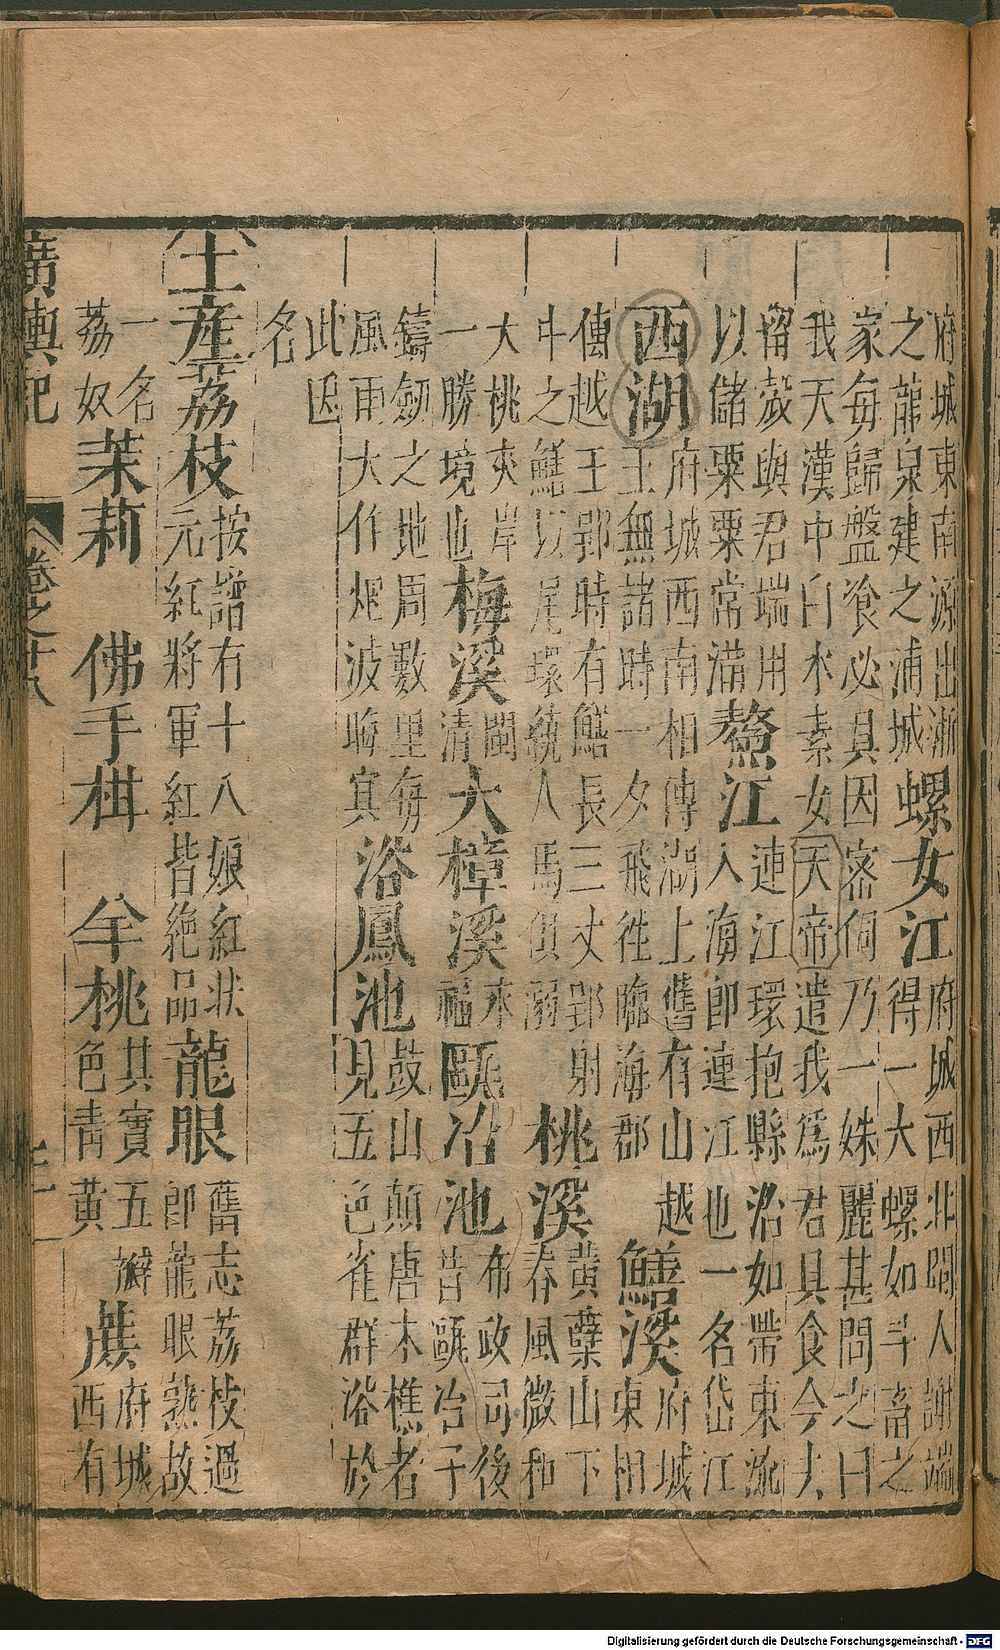 府城東南源出浙之龍泉建之浦城螺女江府城西北閩人謝端得一大螺如斗畜之
家每歸盤飡必具因密伺乃一姝麗甚問之曰我天漢中白水素女天帝遣我爲君具食今去
留殼與君端用以儲粟粟常滿鰲江連江環抱縣治如帶東流入海卽連江也一名岱江
西湖府城西南相傳湖上舊有山越王無諸時一夕飛徃臨海郡鱔溪府城東相
傳越王郢時有鱔長三丈郢射中之鱔以尾環繞人馬俱溺桃溪黃蘖山下春風微和
大桃夾岸一勝境也梅溪閩清大樟溪永福甌冶池布政司後昔甌冶子
鑄劒之地周數里每風雨大作烟波晦冥浴鳳池鼓山顛唐木樵者見五色雀群浴於
此因名
土産荔枝按譜有十八娘紅狀元紅將軍紅皆絶品龍眼舊志荔枝過卽龍眼熟故
一名荔奴茉莉 佛手柑 羊桃其實五瓣色青黃蔗府城西有
廣輿記 卷之十八
Digitalisierung gefördert durch die Deutsche Forschungsgemeinschaft - DFG